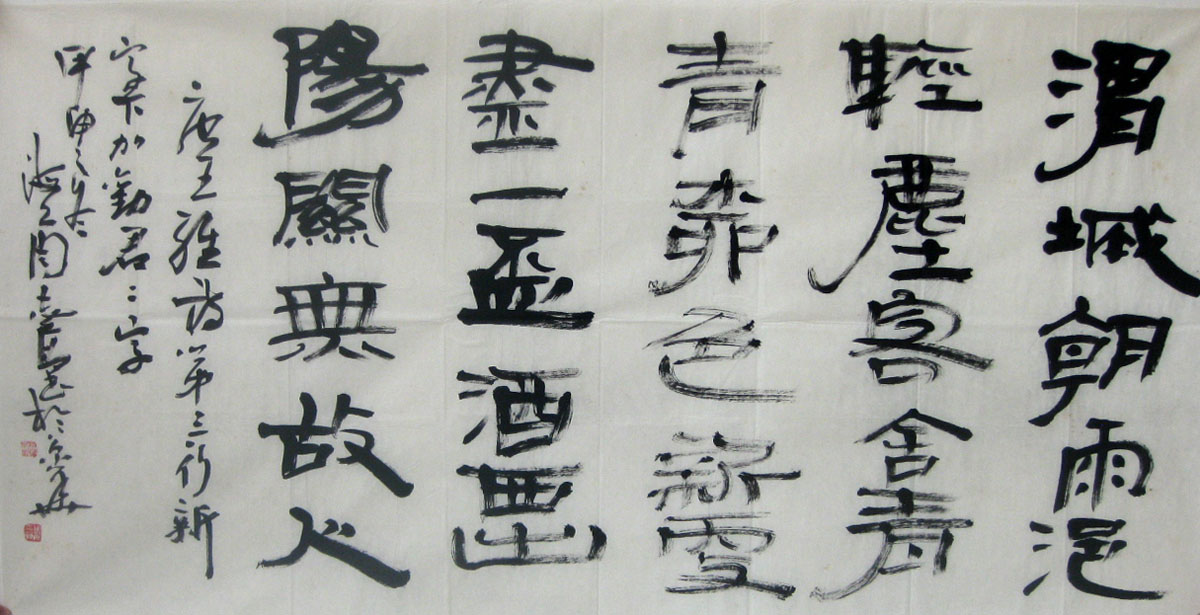 渭城朝雨浥
輕塵客舍青
青柳色新更
盡一盃酒西出
陽關無故人
唐王維詩第三行新
字下加勸君二字
甲申之冬
海上周志高書於京華